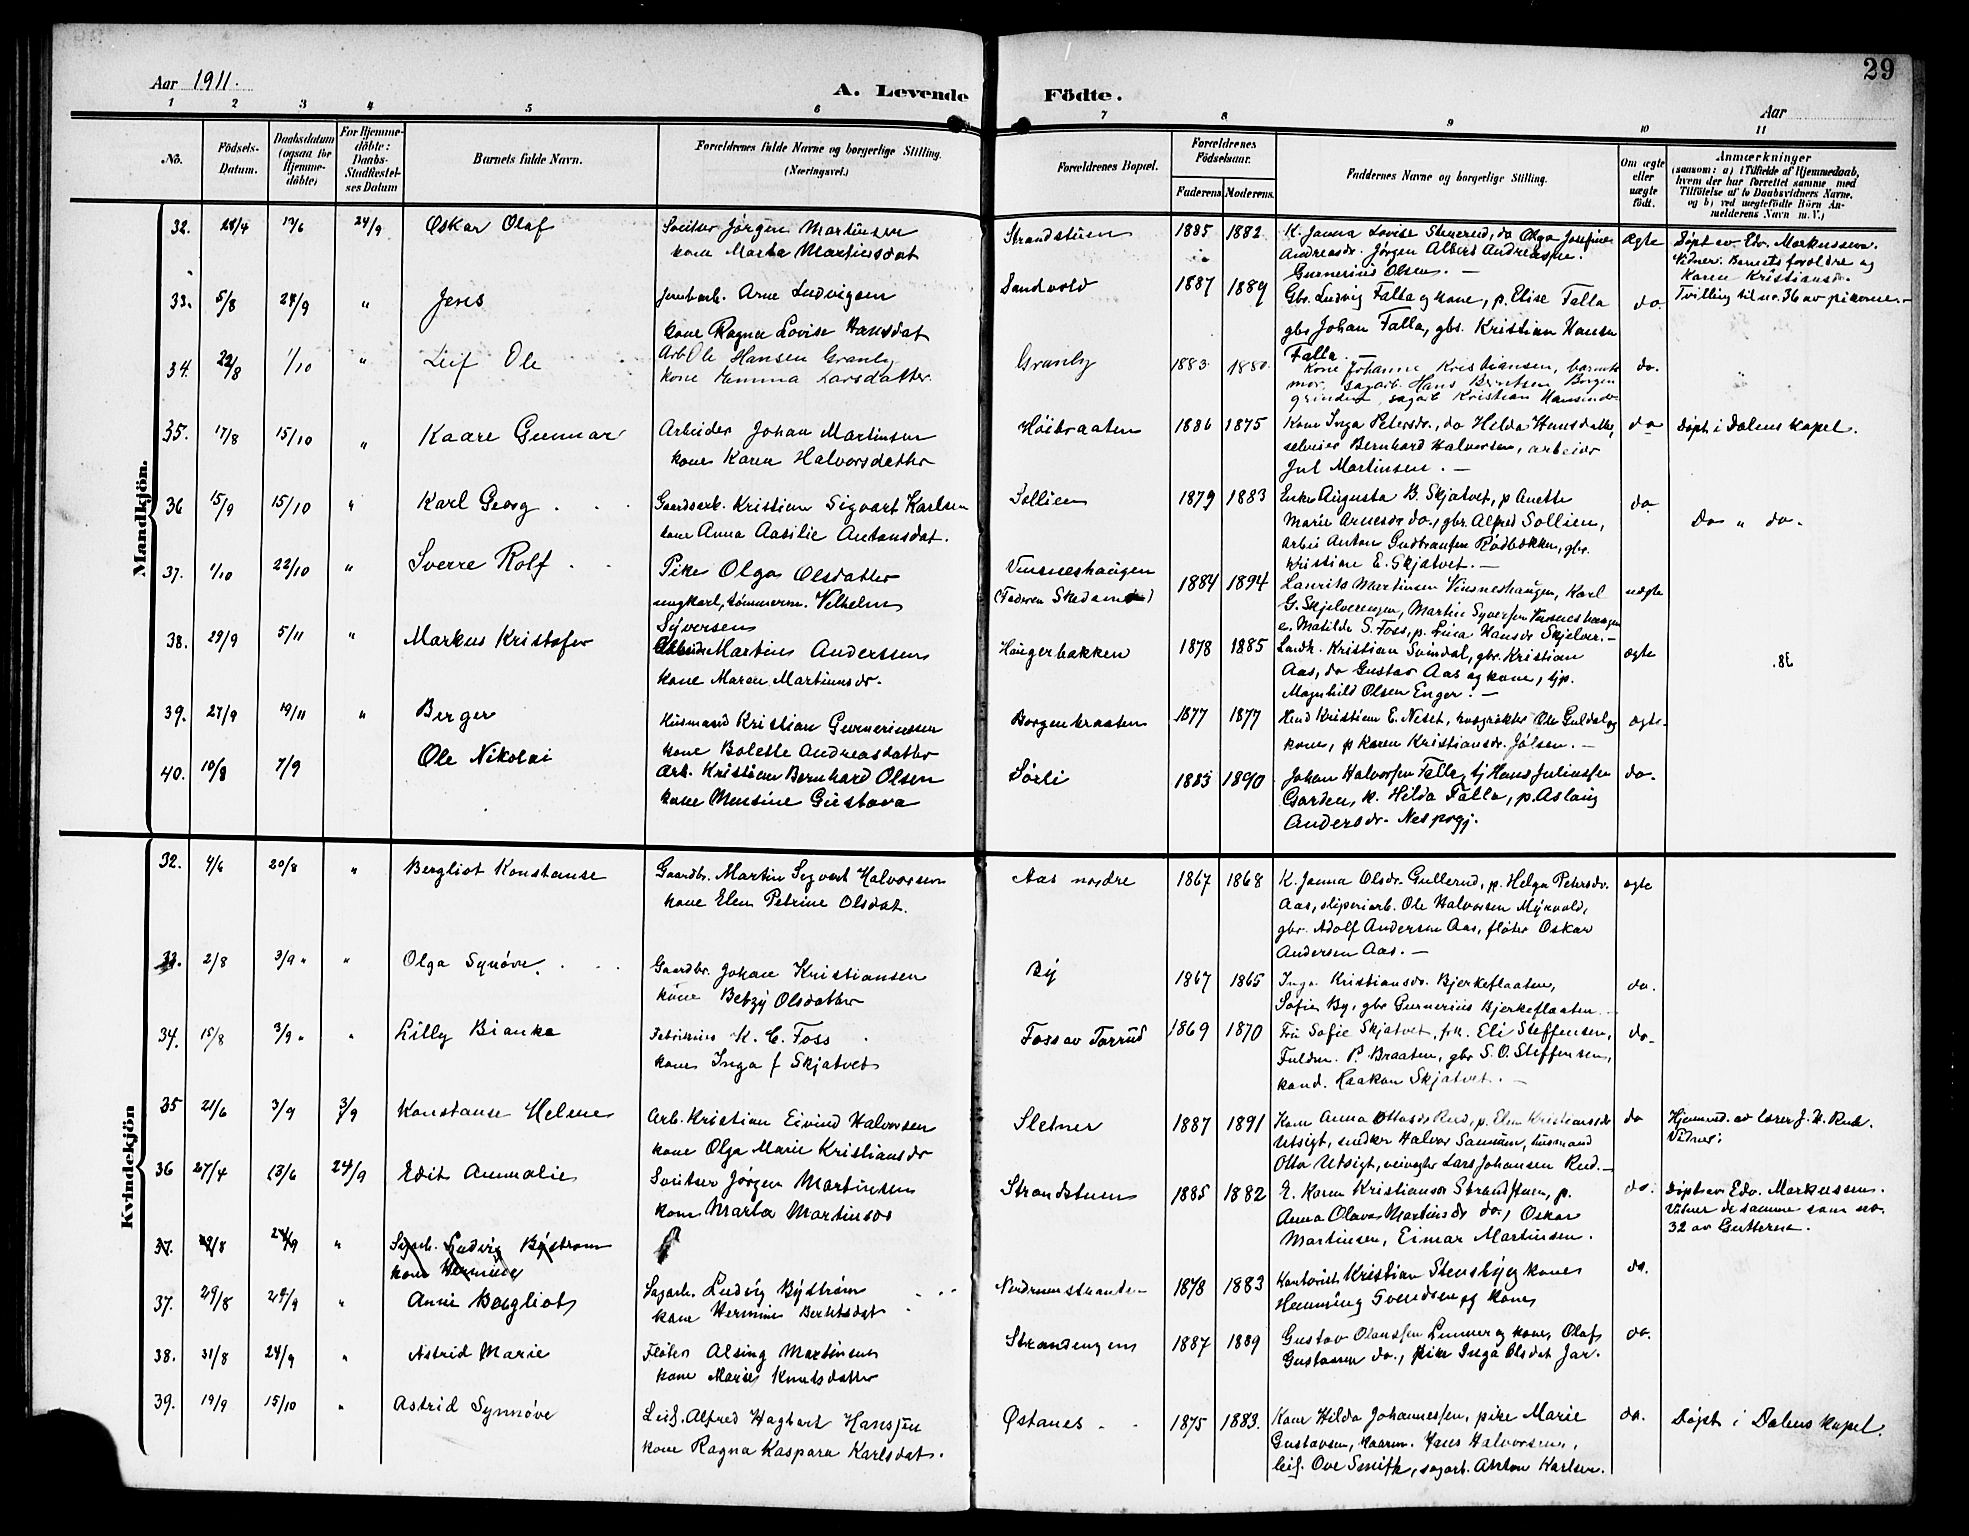 Aar 1911.
A. Levende Födte.
29
Aar
1 2 3 4 5 6 7 8 9 10 11
No.
Födsels-Datum.
Daabsdatum (ogsaa for Hjemme-döbte)
For Hjemme-döbte: Daabs-Stadfæstel-ses Datum
Barnets fulde Navn.
Forældrenes fulde Navne og borgerlige Stilling. (Næringsvei.)
Forældrenes Bopæl.
Forældrenes Födselsaar.
Faderens
Moderens.
Faddernes Navne og borgerlige Stilling.
Om ægte eller uægte födt.
Anmærkninger
(saasom: a) i Tilfælde af Hjemmedaab,
hvem der har forrettet samme med
Tilföielse af to Daabsvidners Navne.
og b) ved uægtefödte Börn An-
melderens Navn m. V.)
Mandkjön.
32. 28/4 13/6 24/9 Oskar Olaf
Sveitser Jørgen Martinsen
kone Marta Martinsdat
Strandstuen 1885 1882
K. Janna Lovise Stenerud, do Olga Josefine
Andreasdr. Jørgen Albert Andreassen.
Gunnerius Olsen. —
Ægte
Døpt av Edv. Markussen.
Vidner: Barnets forældre og
Karen Kristiansdr.
Tvilling til no. 36 av pikerne.—
33. 5/8 24/9 " Jens
Jernbarb. Arne Ludvigsen
kone Ragna Lovise Hansdat
Sandvold 1887 1889
Gbr. Ludvig Falla og kone, p. Elise Falla
gbr Johan Falla, gbr. Kristian Hansen
Falla. —
do.
34. 22/8 1/10 " Leif Ole
Arb Ole Hansen Granly
kone Emma Larsdatter
Granly 1883 1880
Kone Johanne Kristiansen, barnets
mor, sagarb. Hans Berntsen Borgen
grinden, sagarb Kristian Hansen do
do.
35. 17/8 15/10 " Kaare Gunnar
Arbeider Johan Martinsen
kone Karen Halvorsdatter
Høibraaten 1886 1875
Kone Inga Petersdr., do Helda Hansdatter,
selveier Bernhard Halvorsen, arbeider
Jul Martinsen. —
do
Døpt i Dalens kapel.
36 15/9 15/10 " Karl Georg
Gaardsarb. Kristian Sigvart Karlsen
kone Anna Aasilie Antonsdat.
Sollien 1879 1883
Enke Augusta B. Skjatvet, p Anette
Marie Arnesdr do., gbr. Alfred Sollien,
arbei Anton Gudbransen Rødbækken, gbr.
Kristian E. Skjatvet. —
do
Do " do.
37. 1/10 22/10 " Sverre Rolf
Pike Olga Olsdatter
ungkarl, tømmerm. Vilhelm
Syversen
Vinsneshaugen
(Faderen Skedsmo) 1884 1894
Laurits Martinsen Vinsneshaugen, Karl
G. Skjelverengen, Martin Syversen Vinsneshaugen
e. Matilde S. Foss, p. Lina Hansdr Skjelver. —
uægte
38. 29/9 5/11 " Markus Kristofer
Martins Anderssen
kone Maren Martinusdr.
Haugerbakken 1878 1885
Landh. Kristian Svindal, gbr. Kristian
Aas, do Gustav Aas og kone, tjp.
Magnhild Olsen Enger. —
ægte
38.
39. 27/9 19/11 " Berger
Husmand Kristian Gunneriussen
kone Bolette Andreasdatter
Borgenbraaten 1877 1877
Hmd Kristian E. Neset, husgrækter Ole Guldal og
kone, p Karen Kristiansdr. Jølsen. —
ægte.
40. 10/8 7/9 Ole Nikolai
Arb. Kristian Bernhard Olsen
kone Massine Gustava
Sørli 1883 1890
Johan Halvorsen Falla, tj Hans Juliussen
Garden, k. Hilda Falla, p. Aslaug
Andersdr. Nespogj.
do.
Kvindekjön
32. 4/6 20/8 " Bergliot Konstanse
Gaardbr. Martin Sigvart Halvorsen
kone Elen Petrine Olsdat.
Aas nordre 1867 1868
K. Janna Olsdr. Gullerud, p. Helga Petersdr.
Aas, sliperiarb. Ole Halvorsen Myrvold,
gbr. Adolf Andersen Aas, fløter Oskar
Andersen Aas. —
ægte
33. 2/8 3/9 " " Olga Synøve
Gaardbr. Johan Kristiansen
kone Betzy Olsdatter
By 1867 1865
Inga Kristiansdr. Bjerkeflaaten,
Sofie By, gbr Gunnerius Bjerkeflaaten —
do.
34. 15/8 3/9 " " Lilly Bianka
Fabrikeier K. C. Foss
kone Inga f Skjatvet
Foss av Forrud 1869 1870
Fru Sofie Skjatvet, frk. Eli Steffensen,
Fuldm. P. Braaten, gbr S. O. Steffensen,
kand. Haakon Skjatvet. —
do.
35 21/6 3/9 3/9 Konstanse Helene
Arb. Kristian Eivind Halvorsen
kone Olga Marie Kristiansdr
Sletner 1887 1891
Kone Anna Ottosdr Rud, p. Elen Kristiansdr
Utsigt, snekker Halvor Sannum, husmand
Otto Utsigt, veivogter Lars Johansen Rud. —
do
Hjemmed. av lærer J. H. Rud.
Vidner:
36 27/4 13/6 24/9 Edit Annmalie
Sveitser Jørgen Martinsen
kone Marta Martinsdr
Strandstuen 1885 1882
E. Karen Kristiansdr Strandstuen, p.
Anna Olava Martinsdr do., Oskar
Martinsen, Einar Martinsen.
do.
Døpt av Edv. Markussen.
Vidner de samme som no.
32 av Gutterne.
37. 29/8 24/9 " Sagarb. Ludvig Bystrøm
kone Hermine
37. 29/8 24/9 " Anne Bergliot
Sagarb. Ludvig Bystrøm
kone Hermine Berntsdat
Nordrumstranden 1878 1883
Kontorist Kristian Stensby og kone
Henning Svendsen og kone
do.
38. 31/8 24/9 " Astrid Marie
Fløter Alsing Martinsen
kone Marie Knutsdatter
Strandengen 1887 1889
Gustav Olaussen Lunner og kone, Olaf
Gustavsen do., pike Inga Olsdat Jar.
do.
39. 19/9 15/10 " Astrid Synnøve
Leil. Alfred Hagbart Hanssen
kone Ragna Kaspara Karlsdat.
Østanes 1875 1883.
Kone Hilda Johannessen, pike Marie
Gustavsen, Maaren. Hans Halvorsen,
leil. Ove Smith, sagarb. Anton Karlsen.
do.
Døpt i Dalens kapel.